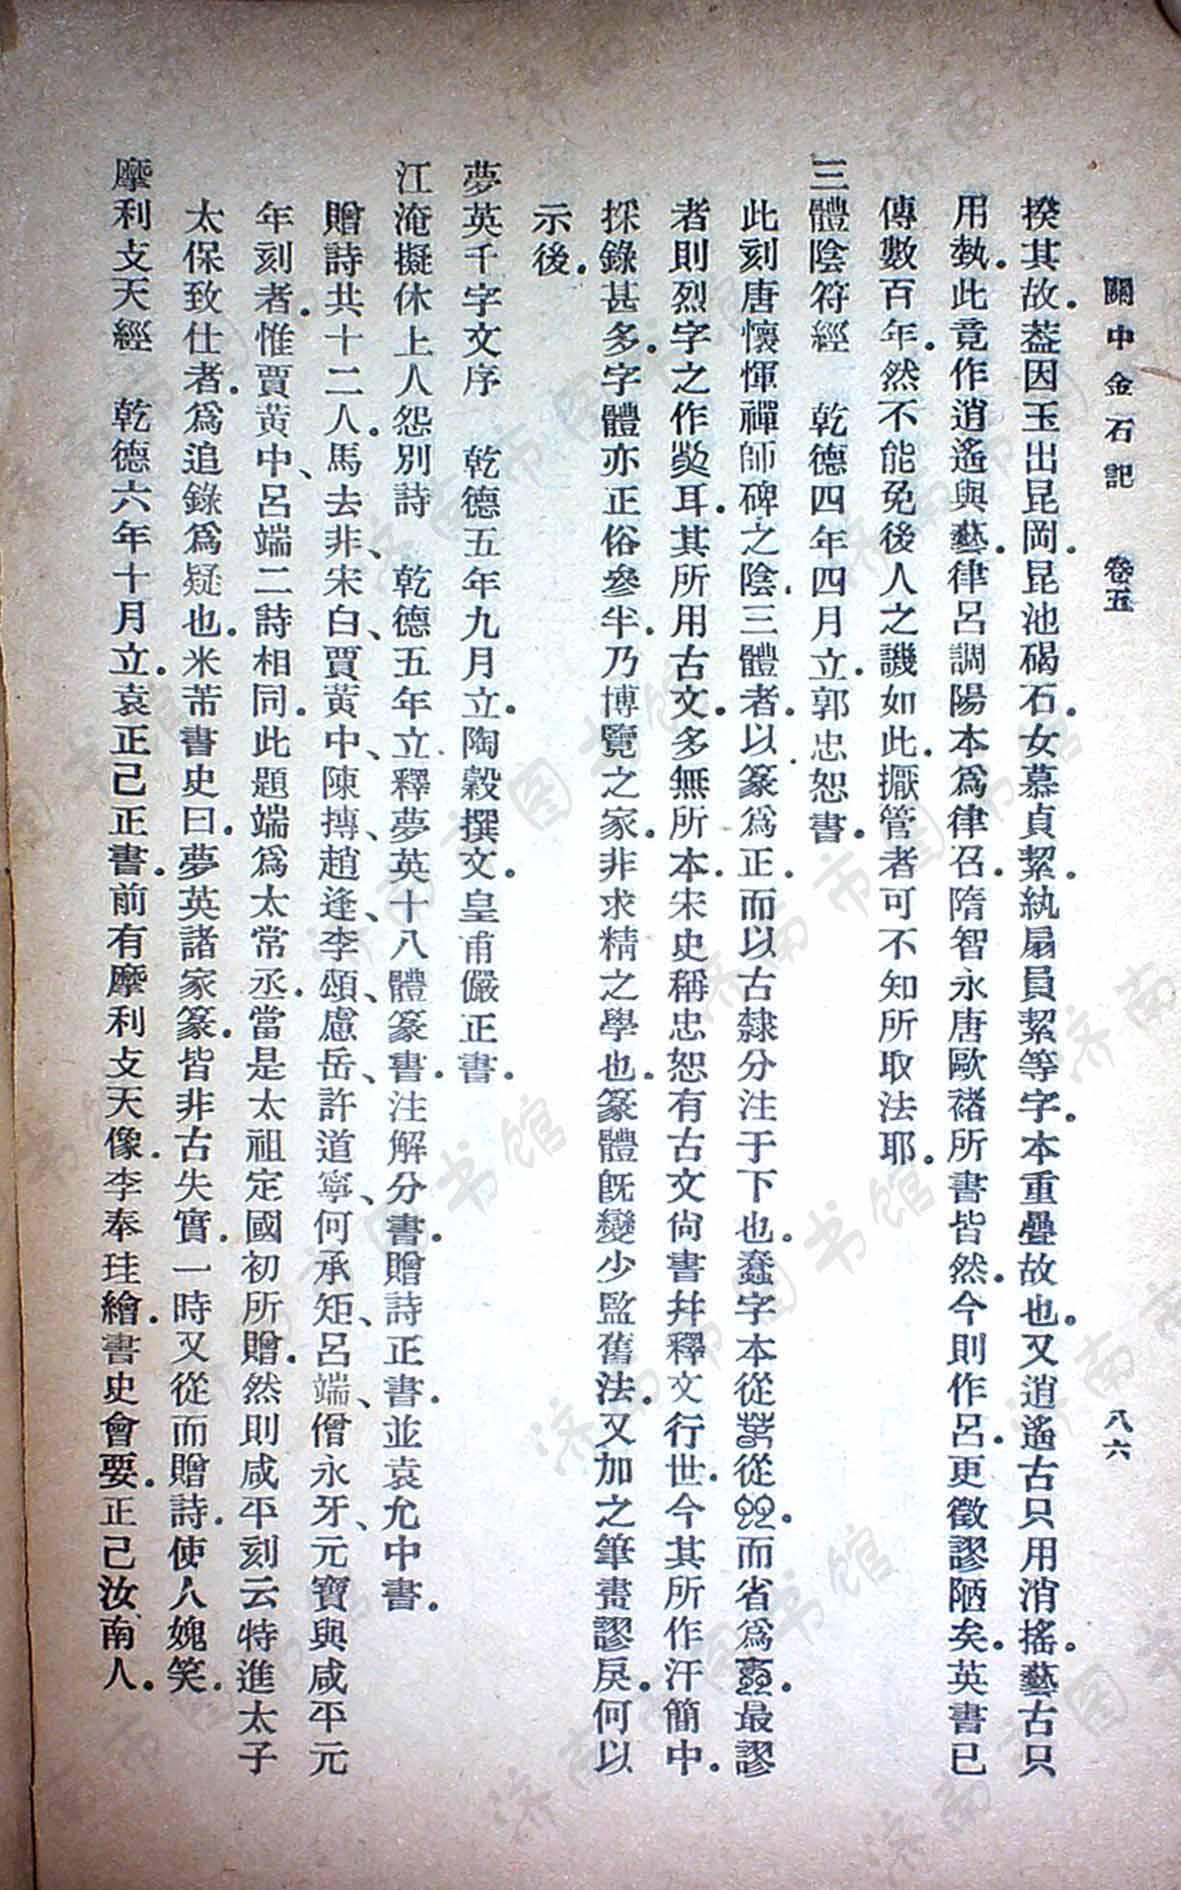 關中金石記　卷五　八六
揆其故。葢因玉出昆岡。昆池碣石。女慕貞絜。紈扇員絜等字。本重疊故也。又逍遙古只用消搖。藝古只
用埶。此竟作逍遙與藝。律呂調陽本爲律召。隋智永唐歐褚所書皆然。今則作呂。更徵謬陋矣。英書已
傳數百年。然不能免後人之譏如此。擫管者可不知所取法耶。
三體陰符經　乾德四年四月立。郭忠恕書。
此刻唐懷惲禪師碑之陰。三體者。以篆爲正。而以古隸分注于下也。蠢字本從從。而省爲最謬
者則烈字之作耳。其所用古文。多無所本。宋史稱忠恕有古文尙書幷釋文行世。今其所作汗簡中。
採錄甚多。字體亦正俗參半。乃博覽之家。非求精之學也。篆體旣變少監舊法。又加之筆畫謬戾。何以
示後。
夢英千字文序　乾德五年九月立。陶穀撰文。皇甫儼正書。
江淹擬休上人怨別詩　乾德五年立。釋夢英十八體篆書。注解分書。贈詩正書。並袁允中書。
贈詩共十二人。馬去非、宋白、賈黃中、陳摶、趙逢、李頌、慮岳、許道寧、何承矩、呂端、僧永牙、元寶與咸平元
年刻者。惟賈黃中、呂端二詩相同。此題端爲太常丞。當是太祖定國初所贈。然則咸平刻云特進太子
太保致仕者。爲追錄爲疑也。米芾書史曰。夢英諸家篆。皆非古失實。一時又從而贈詩。使人媿笑。
摩利攴天經　乾德六年十月立。袁正己正書。前有摩利攴天像。李奉珪繪。書史會要。正己汝南人。
济南市图书馆